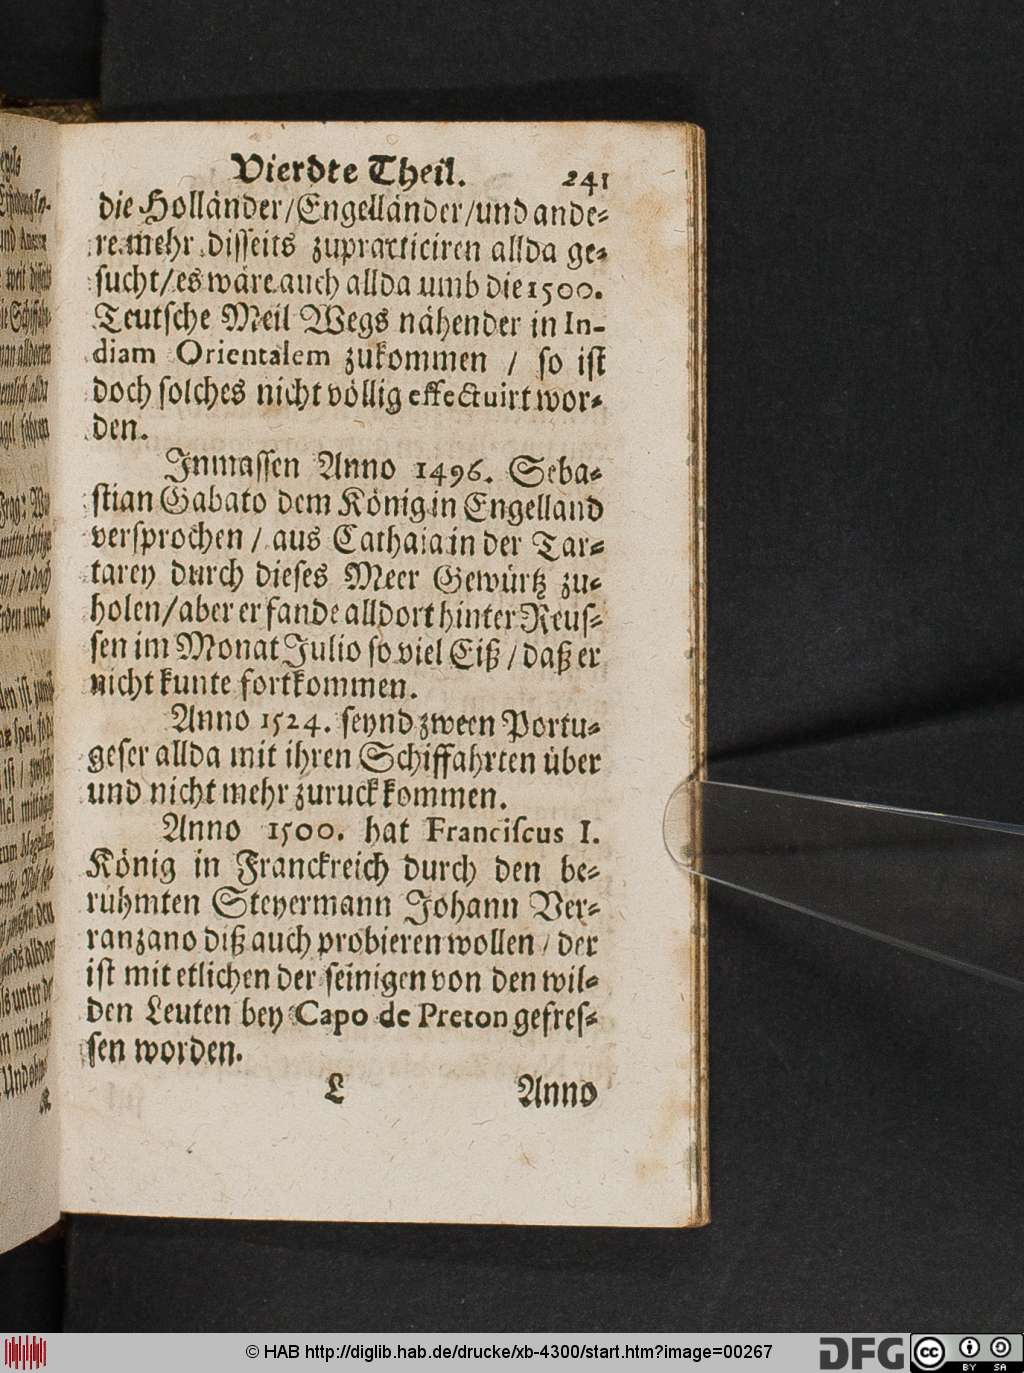 Vierdte Theil. 241
die Holländer/Engelländer/und ande-
re mehr disseits zupracticiren allda ge-
sucht/es wäre auch allda umb die 1500.
Teutsche Meil Wegs nähender in In-
diam Orientalem zukommen / so ist
doch solches nicht völlig effectuirt wor-
den.
Inmassen Anno 1496. Seba-
stian Gabato dem König in Engelland
versprochen / aus Cathaia in der Tar-
tarey durch dieses Meer Gewürtz zu-
holen/aber er fande alldort hinter Reus-
sen im Monat Julio so viel Eiß / daß er
nicht kunte fortkommen.
Anno 1524. seynd zween Portu-
geser allda mit ihren Schiffahrten über
und nicht mehr zuruck kommen.
Anno 1500. hat Franciscus I.
König in Franckreich durch den be-
rühmten Steyermann Johann Ver-
ranzano diß auch probieren wollen / der
ist mit etlichen der seinigen von den wil-
den Leuten bey Capo de Preton gefres-
sen worden.
L Anno
© HAB http://diglib.hab.de/drucke/xb-4300/start.htm?image=00267
DFG
cc BY SA